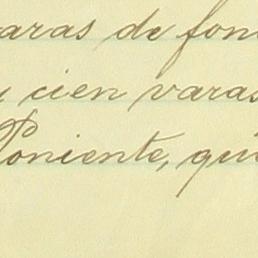 varas de fon
y cien varas
Poniente, qu